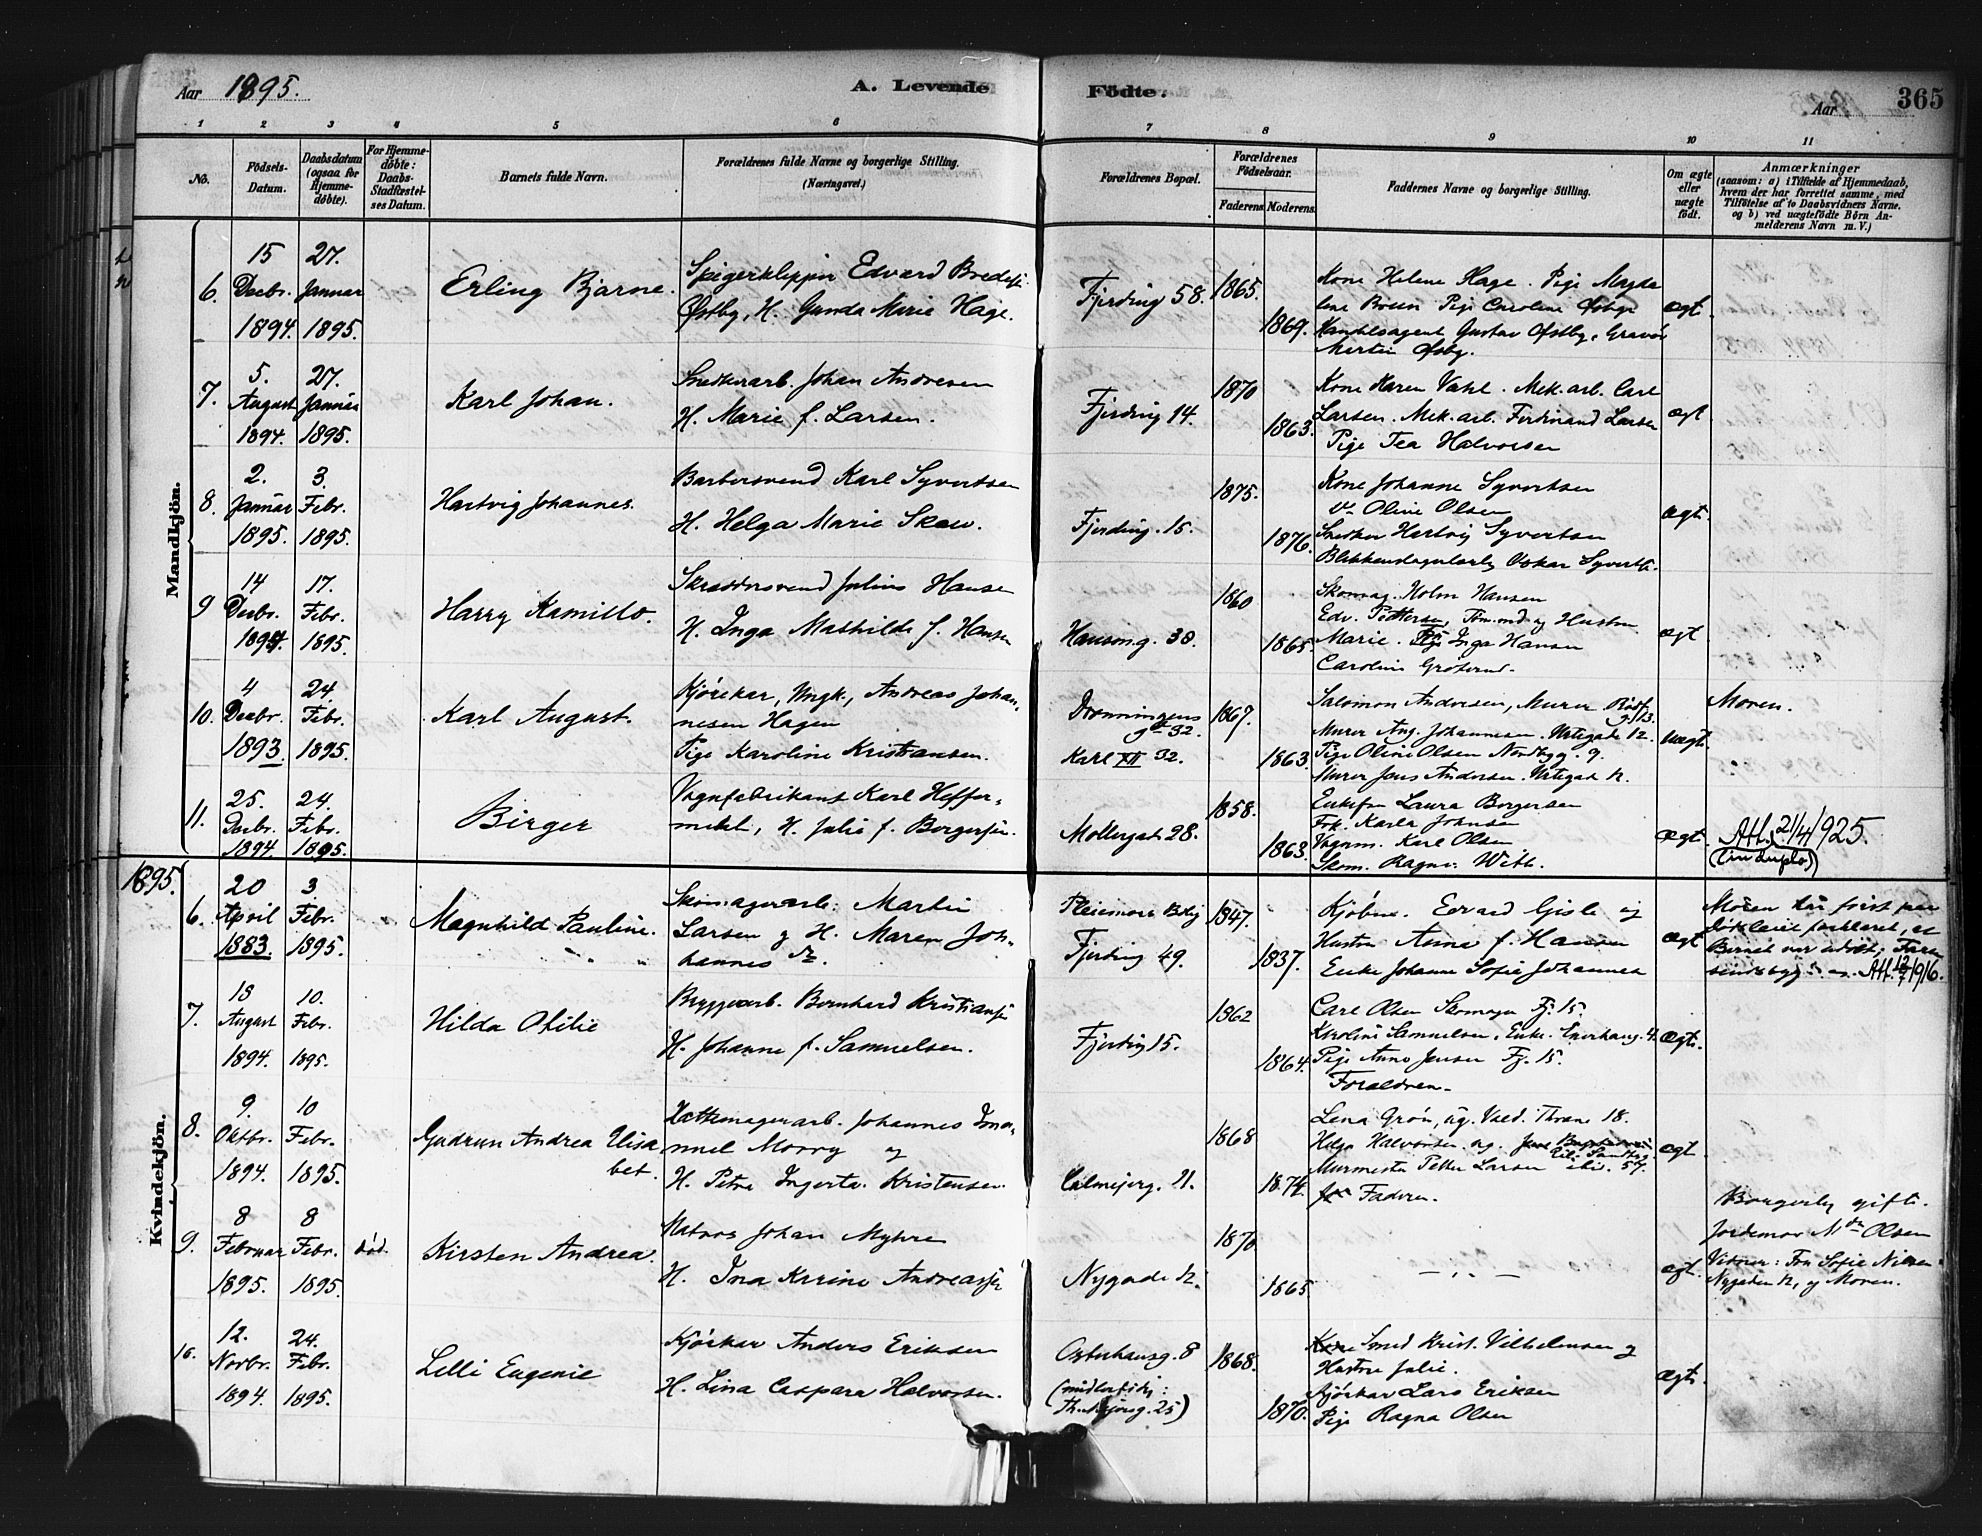 Aar 1895.
A. Levende Födte.
Aar
365
1 2 3 4 5 6 7 8 9 10 11
No.
Födsels-
Datum.
Daabsdatum
(ogsaa for
Hjemme-
döbte).
For Hjemme-
döbte:
Daabs-
Stadfæstel-
ses Datum.
Barnets fulde Navn.
Forældrenes fulde Navne og borgerlige Stilling.
(Næringsvei.)
Forældrenes Bopæl.
Forældrenes
Födselsaar.
Faderens.
Moderens.
Faddernes Navne og borgerlige Stilling.
Om ægte
eller
uægte
födt.
Anmærkninger
(saasom: a) i Tilfælde af Hjemmedaab,
hvem der har forrettet samme, med
Tilföielse af to Daabsvidners Navne.
og b) ved uægtefödte Börn An-
melderens Navn m. V.)
Mandkjön.
6.
15
Decbr.
1894.
27.
Januar
1895.
Erling Bjarne.
Edvard
Østby, H. Gunda Marie Hage.
Fjerding 58.
1865.
1869.
Kone Helene Hage. Pige Magda
lene Pige Caroline Østbye
Handelsagent Gustav Østby, Gravør
Martin Østby.
ægt.
7.
5.
August
1894.
27.
Januar
1895.
Karl Johan.
Snedkerarb. Johan Andresen
H. Marie f. Larsen.
Fjerding 14.
1870
1863.
Kone Maren Vahl. Mek. arb. Carl
Larsen. Mek. arb. Ferdinand Larsen
Pige Tea Halvorsen
ægt
8.
2.
Januar
1895.
3.
Febr.
1895.
Hartvig Johannes.
Barbersvend Karl Syvertsen
H. Helga Marie Skau.
Fjerding. 15.
1875.
1876.
Kone Johanne Syvertsen
Do Oline Olsen
Snedker Hartvig Syvertsen
Oskar
ægt.
9
14
Decbr.
1894.
17.
Febr.
1895.
Harry Kamillo.
Skræddersvend Julius Hansen
H. Inga Mathilde f. Hansen
Hausmg. 30.
1860
1865.
Skomag. Holm Hansen
Edv. Pettersen, og Hustru
Marie. Pige Inga Hansen
ægt
10.
4
Decbr.
1893.
24
Febr.
1895.
Karl August.
Kjørekar, Ungk., Andreas Johan-
nesen Hagen
Pige Karoline Kristiansen.
Dronningens
gt 32.
Karl XII 32.
1867.
1863.
Salomon Andersen, Murer
Murer Aug. Johannesen. Urtegade 12.
Pige Oline Olsen Nordbyg. 9.
Murer Jens Andersen. Urtegad 12.
uægt.
Moren.
11.
25.
Decbr.
1894.
24.
Febr.
1895.
Birger
Vognfabrikant Karl Heffer-
mehl, H. Julie f. Borgersen.
Møllergad. 28.
1858.
1863.
Enkefru Laura Borgersen
Frk. Karla Johnsen
Vognm. Karl Olsen
Skom. Ragnv. With.
ægt
Att. 21/4 1925.
(in duplo)
1895.
Kvindekjön.
6.
20
April
1883.
3
Febr.
1895.
Magnhild Pauline.
Skomagerarb. Martin
Larsen og H. Maren Joh-
hannes Dr.
Fjerding 49.
1847.
1837.
Kjøbm. Edvard Gisle og
Hustru Anna f. Hansen
Enke Johanne Sofie Johannes
ægt
Moren har først paa
forklaret, at
Barnet var udøbt.
Att. 1916.
7.
18
August
1894
10.
Febr.
1895.
Hilda Otilie
Bryggearb. Bernhard Kristiansen
H. Johanne f. Samuelsen.
Fjerding 15.
1862
1864.
Carl Olsen Skomager Fj. 15.
Karoline Samuelsen, Enke. Enerhaug. 4.
Pige Anne Jensen Fj. 15.
Forældrene.
ægt.
8.
9.
Oktbr.
1894.
10
Febr.
1895.
Gudrun Andrea Elisa
bet.
Hattemagerarb. Johannes Ima-
nuel Morry og
H. Petra Ingerta. Kristensen.
Calmejerg. 11.
1868
1874.
Lena Grøn, ug. Vald. Thrane 18.
Helga Halvorsen. ug.
Murmester Petter Larsen 57.
Faderen.
ægt
9.
8
Februar
1895.
8
Febr.
1895.
død.
Kirsten Andrea.
Matros Johan Myhre
H. Ina Karine Andreassen
Nygade 12.
1870
1865.
– „ –
ægt.
Borgerlig gift.
Jordemor Olsen
Vidner: Fru Sofie Nilsen
Nygaden 12, og Moren.
10.
12.
Novbr.
1894.
24.
Febr.
1895.
Lelli Eugenie
Kjørekar Anders Eriksen
H. Lina Caspara Halvorsen.
Osterhausg. 8
(midlertidig:
25)
1868.
1870.
Smed Krist. Vilhelmsen og
Hustru Julie.
Kjørekar Lars Eriksen
Pige Ragna Olsen
ægt.